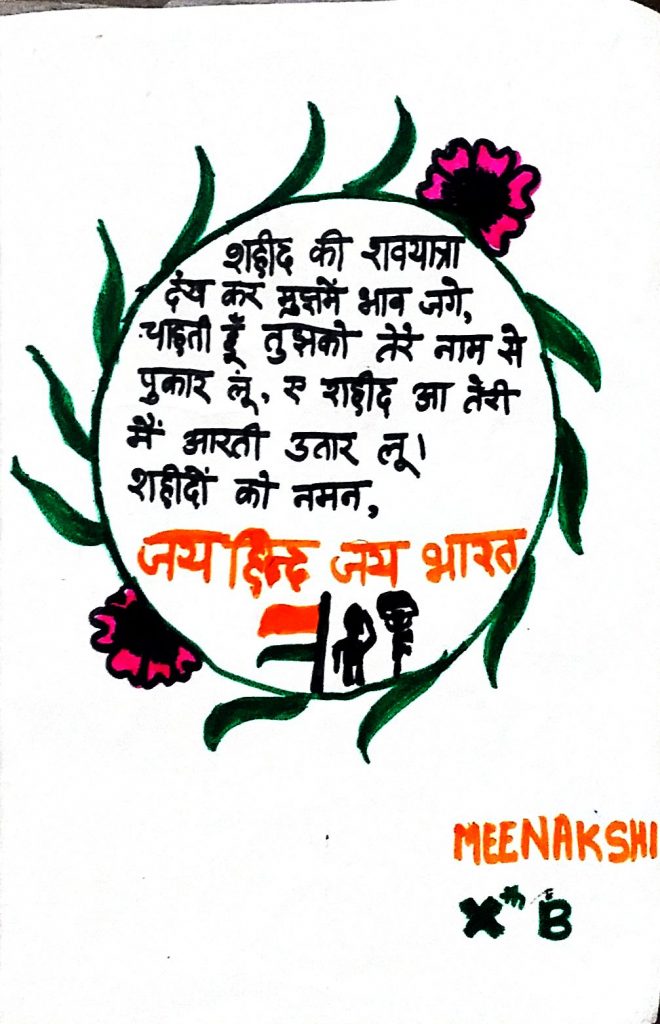 शहीद की शवयात्रा
देख कर मुझमें भाव जगे,
चाहती हूँ तुझको तेरे नाम से
पुकार लूं, ए शहीद आ तेरी
मैं आरती उतार लू।
शहीदों को नमन,
जय हिन्द जय भारत
MEENAKSHI
Xth B